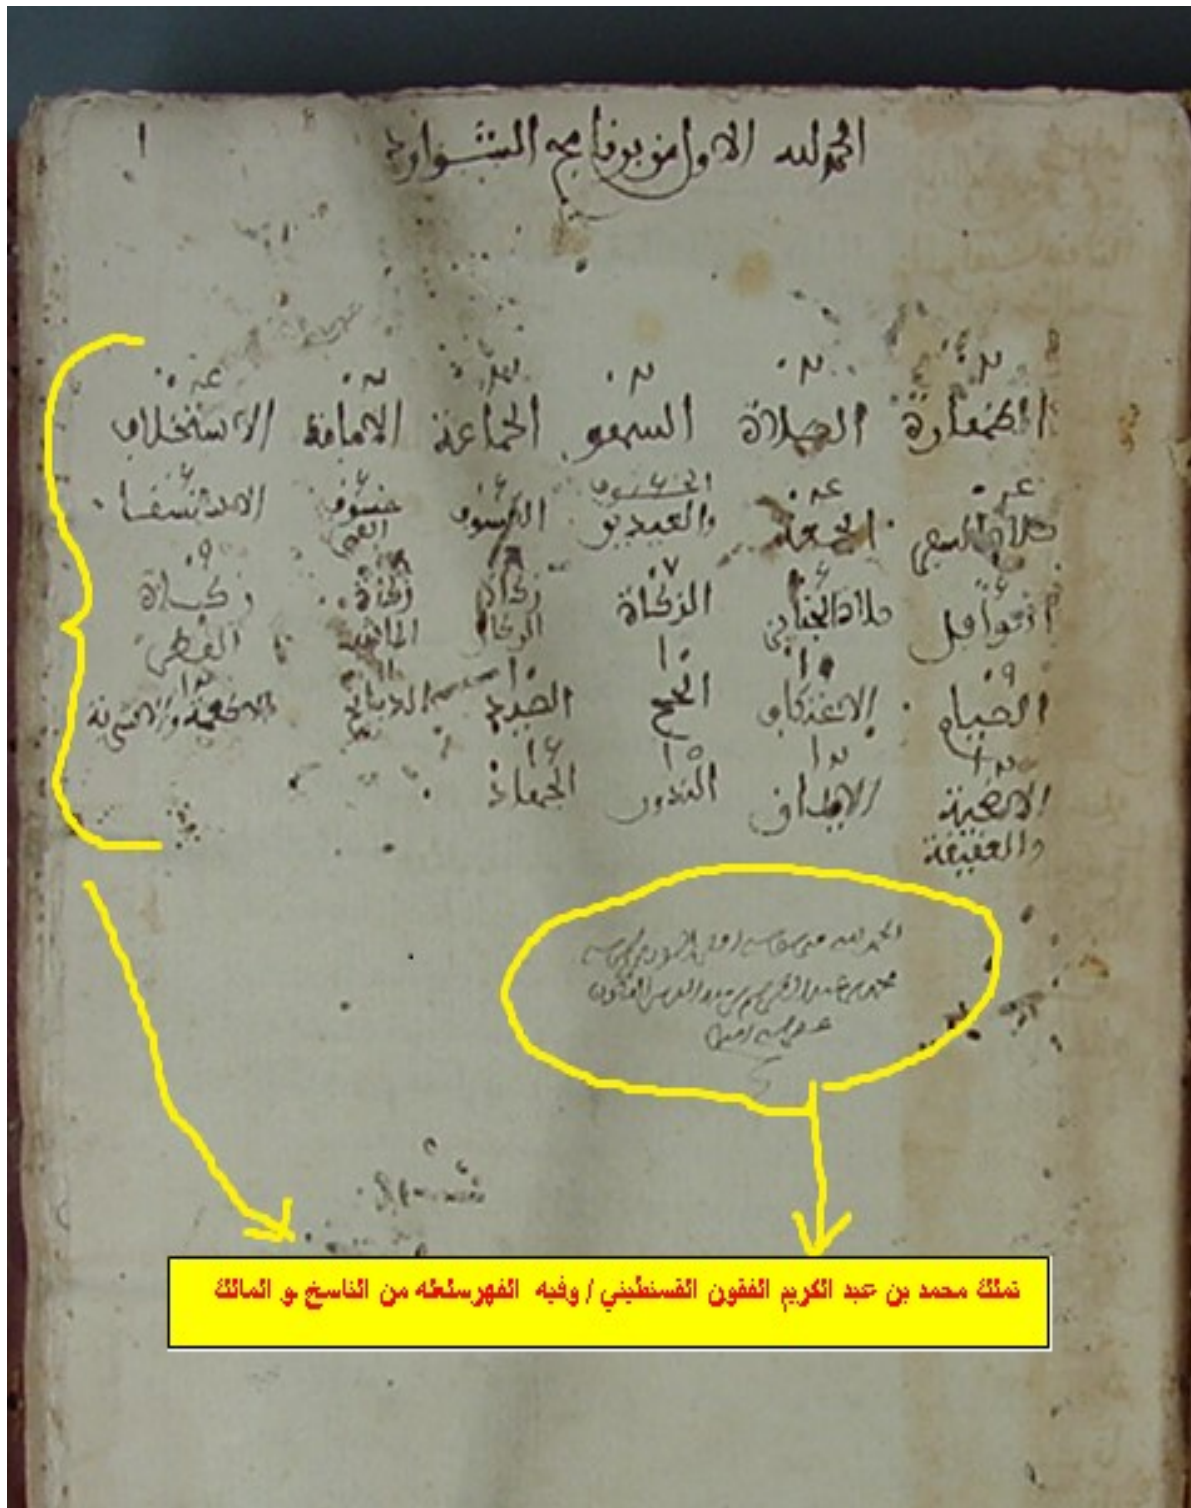 الحمد لله الاول من برنامج الشوارد
الطهارة الصلاة السهو الجماعة الامامة الاستخلاف
صلاة السفر الجمعة والعيدين الكسوف خسوف القمر الاستسقا
النوافل صلاة الجنايز الزكاة زكاة الركاز زكاة الماشية زكاة الفطر
الصيام الاعتكاف الحج الصيد الذبايح الاطعمة والاشربة
الاضحية الايمان النذور الجهاد
والعقيقة
الحمد لله
محمد بن عبد الكريم الفكون
تملك محمد بن عبد الكريم الفقون القسنطيني / وفيه الفهرسلعله من الناسخ او المالك